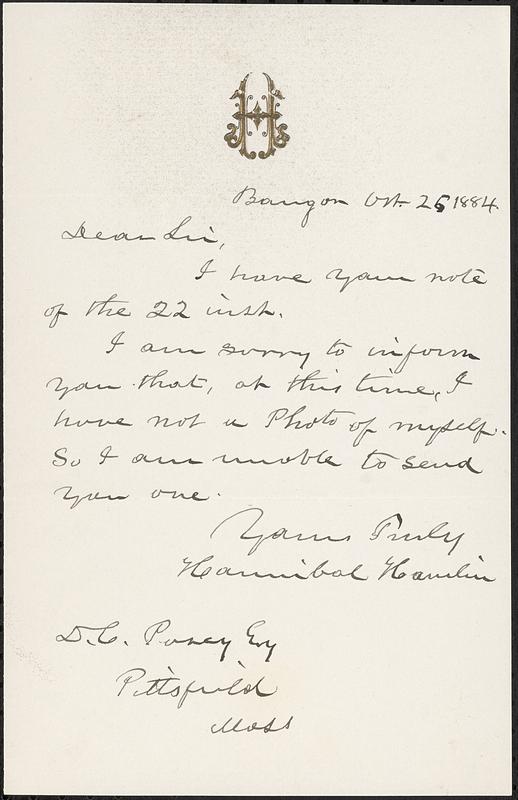 H
Bangor Oct. 25 1884
Dear Sir,
I have your note
of the 22 inst.
I am sorry to inform
you that, at this time, I
have not a Photo of myself.
So I am unable to send
you one.
Yours Truly
Hannibal Hamlin
D. C. Esq
Pittsfield
Mass